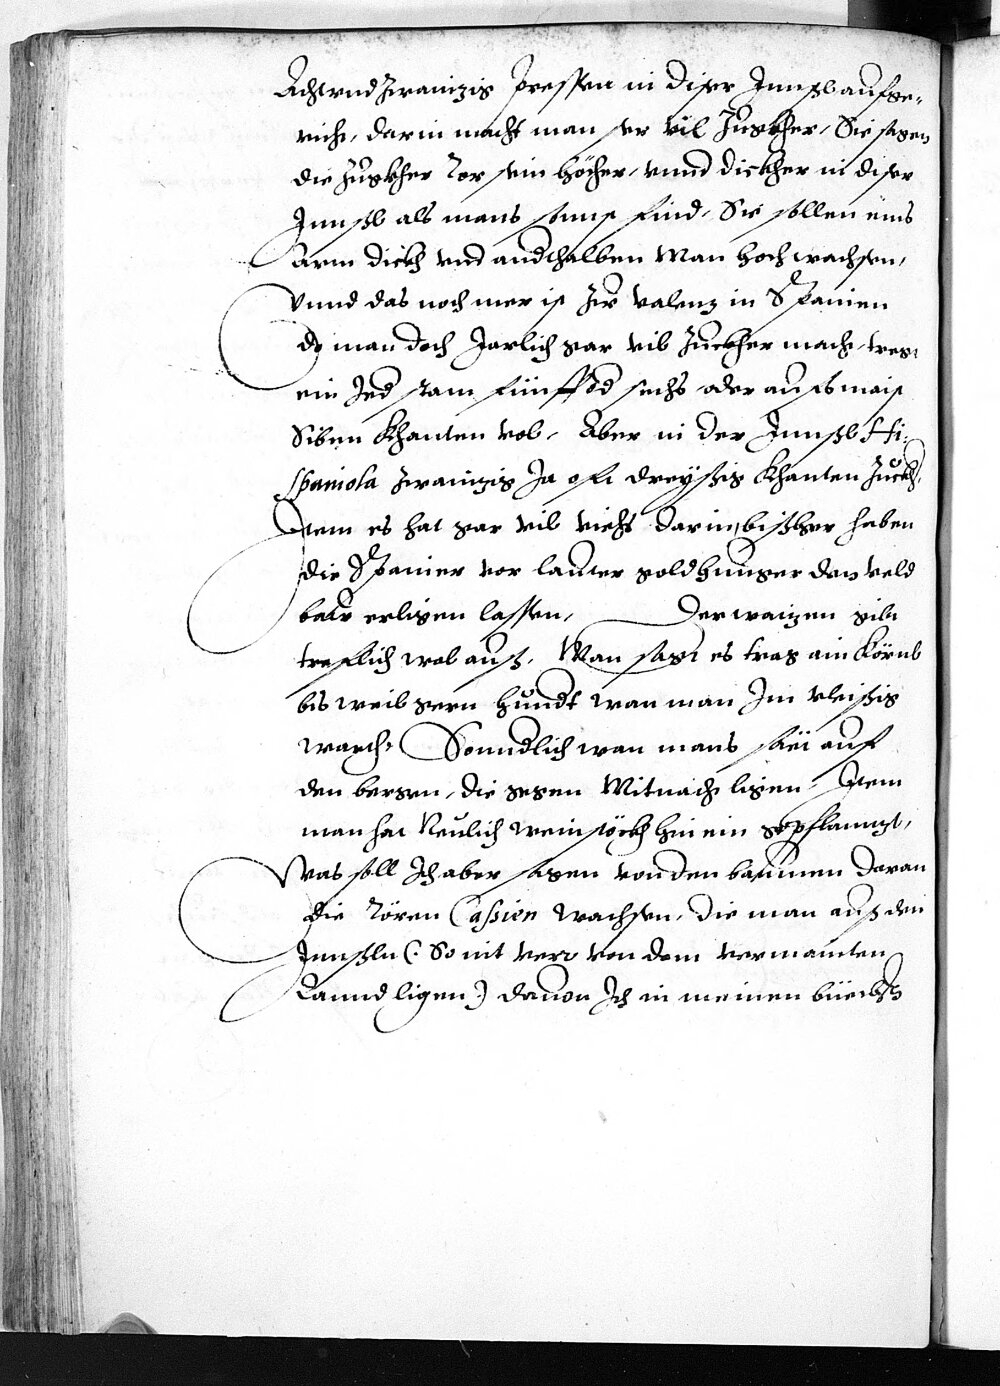 Achtvndzwainzig Pressen in diser Jnnsel aufge-
richt, darin macht man ser vil Zugkher, Sie sagen
die Zugkher Ror sein höcher, vnnd dickher in diser
Jnnsel als mans sonnst find, Sie sollen eins
arm dickh vnd andthalben Man hoch wachsen,
Vnnd das noch mer ist Zw Valenz in Spanien
do man doch Jarlich gar vil Zuckher macht, tregt
ein Jed stam fünff od sechs, oder aufs maist
Siben Khanten vol, Aber in der Jnnsel Hi-
spaniola zwainzig Ja oft dreyssig Khanten Zuckh.
Jtem es hat gar vil viehs darin, bissher haben
die Spanier vor lauter goldhunger den veld
baw erligen lassen, Der waizen gibt
treflich wol auss, Man sagt es trag ain Körnl
bis weil gern hundt wan man Jm vleissig
warth, Sonndlich wan mans säet auf
den bergen, die gegen Mitnacht ligen, Jtem
man hat Neulich weinstöckh hinein gepflannzt,
Was soll Jch aber sagen von den baumen daran
die Rören Cassien wachsen, die man auss den
Jnnseln (: So nit verr von dem vermainten
Lannd ligen :) dauon Jch in meinen büechln